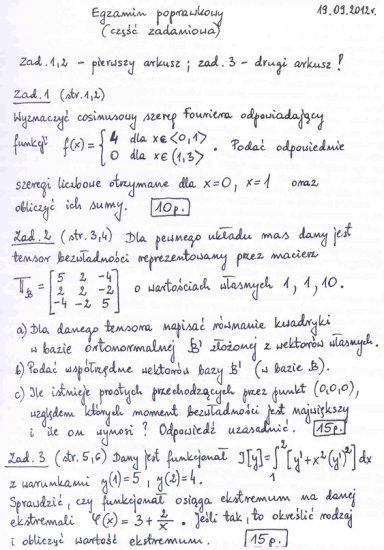 Egzamin poprawkowy 19.09.2012r.
(część zadaniowa)
Zad. 1,2 – pierwszy arkusz ; zad. 3 – drugi arkusz !
Zad. 1 (str. 1,2)
Wyznaczyć cosinusowy szereg Fouriera odpowiadający
funkcji f(x) = { 4 dla x∈<0,1> 0 dla x∈(1,3> . Podać odpowiednie
szeregi liczbowe otrzymane dla x=0, x=1 oraz
obliczyć ich sumy. 10p.
Zad. 2 (str. 3,4) Dla pewnego układu mas dany jest
tensor bezwładności reprezentowany przez macierz
T_B = [5 2 -4; 2 2 -2; -4 -2 5] o wartościach własnych 1, 1, 10.
a) Dla danego tensora napisać równanie kwadryki
w bazie ortonormalnej B' złożonej z wektorów własnych.
b) Podać współrzędne wektorów bazy B' (w bazie B).
c) Ile istnieje prostych przechodzących przez punkt (0,0,0),
względem których moment bezwładności jest największy
i ile on wynosi ? Odpowiedź uzasadnić. 15p.
Zad. 3 (str. 5,6) Dany jest funkcjonał J[y] = ∫₁² [y' + x²(y')²] dx
z warunkami y(1)=5, y(2)=4.
Sprawdzić, czy funkcjonał osiąga ekstremum na danej
ekstremali φ(x) = 3 + 2/x . Jeśli tak, to określić rodzaj
i obliczyć wartość ekstremum. 15p.